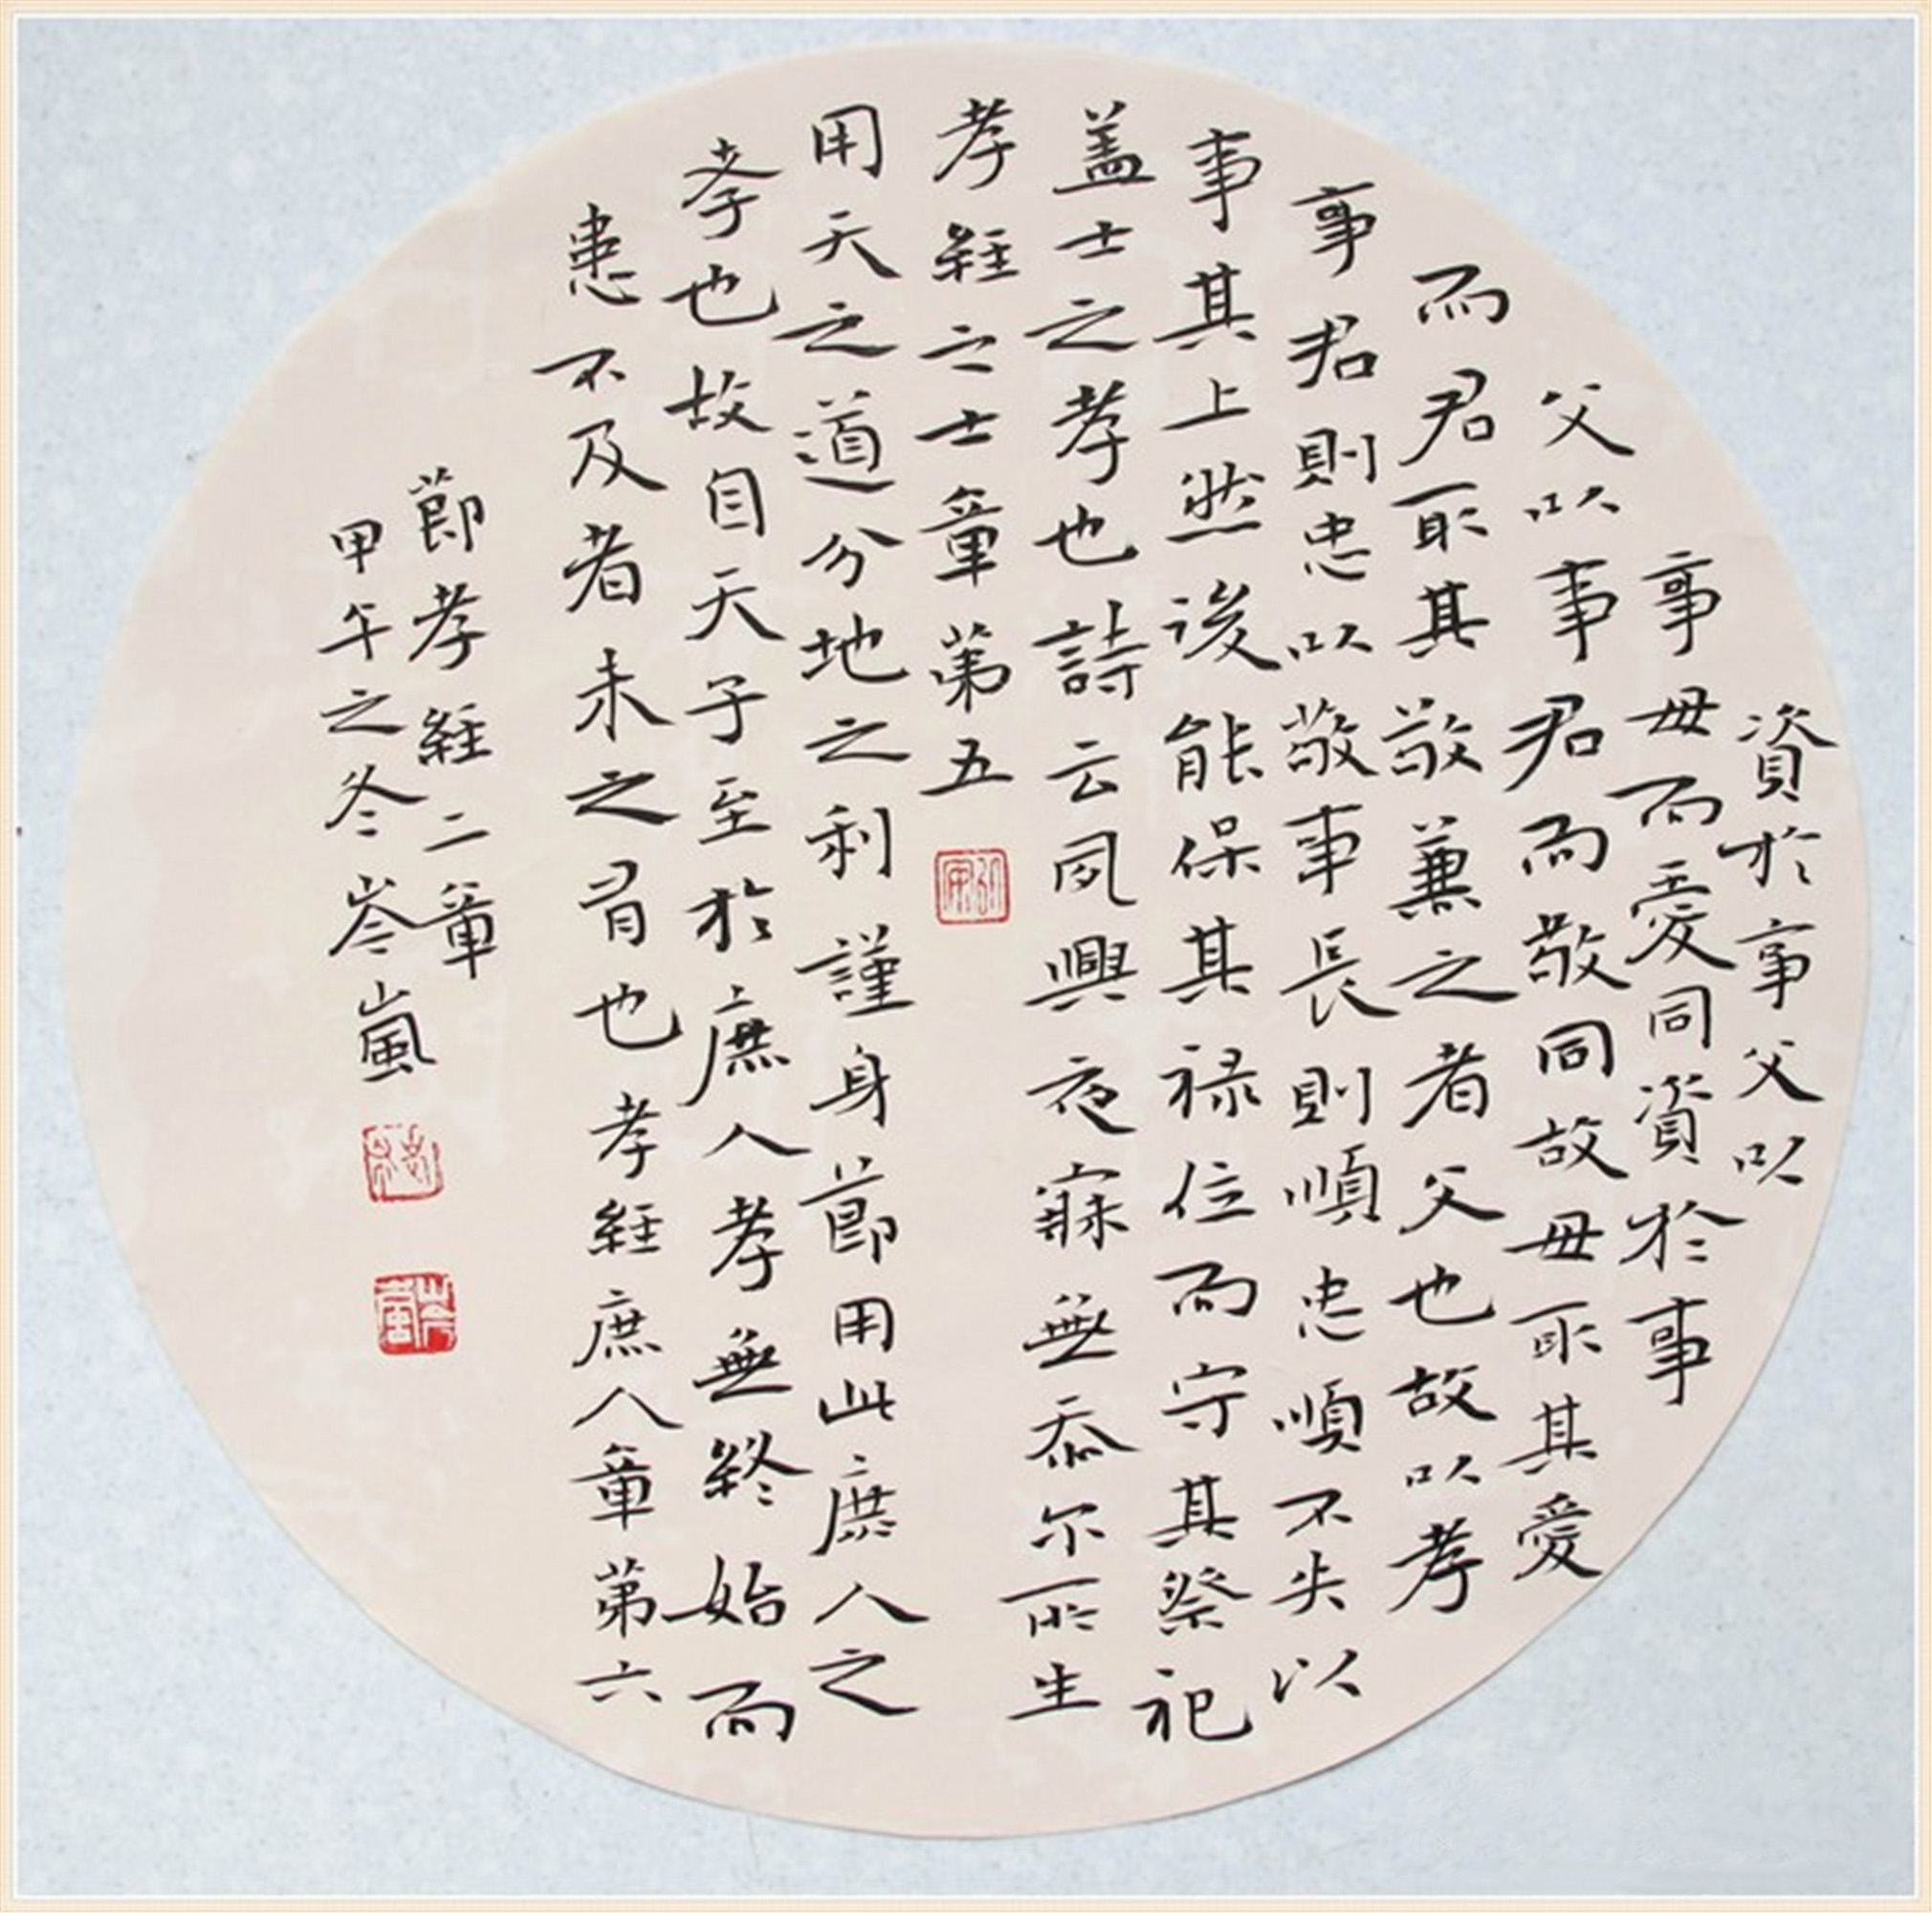 資於事父以
事母而愛同資於事
父以事君而敬同故母取其愛
而君取其敬兼之者父也故以孝
事君則忠以敬事長則順忠順不失以
事其上然後能保其禄位而守其祭祀
盖士之孝也詩云夙興夜寐無忝尔所生
孝經之士章第五
用天之道分地之利謹身節用此庶人之
孝也故自天子至於庶人孝無終始而
患不及者未之有也孝經庶人章第六
節孝經二章
甲午之冬岑嵐